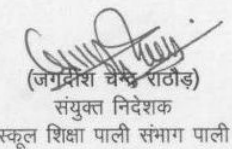 (जगदीश चन्द्र राठौड़)
संयुक्त निदेशक
स्कूल शिक्षा पाली संभाग पाली